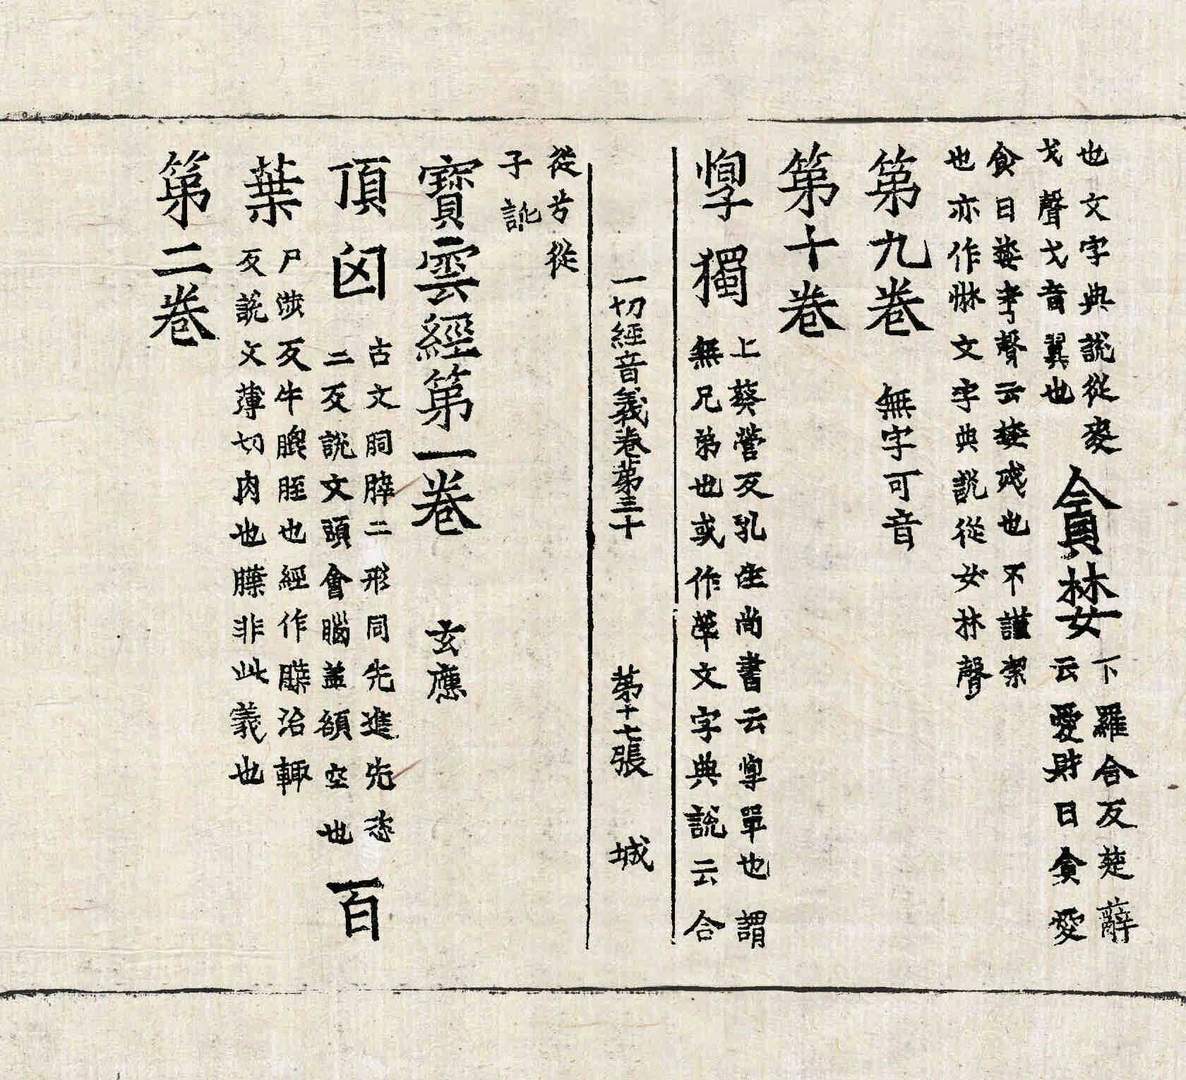 也文字典說從麥
弋聲弋音翼也
貪婪
下羅合反楚辭
云愛財曰貪愛
食曰婪考聲云婪殘也不謹潔
也亦作惏文字典說從女林聲
第九卷
無字可音
第十卷
惸獨
上葵營反孔注尚書云惸單也謂
無兄弟也或作煢文字典說云合
一切經音義卷第三十
第十七張
城
從
從
子
寶雲經第一卷
玄應
頂囟
古文𦜓膟二形同先進先恣
二反說文頭會腦蓋頟空也
百
葉
尸涉反牛䐿胵也經作䐑治輒
反說文薄切肉也䐑非此義也
第二卷